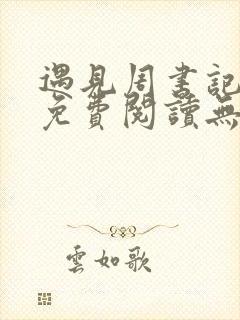 遇見周書記
免費閱讀無
雲如歌